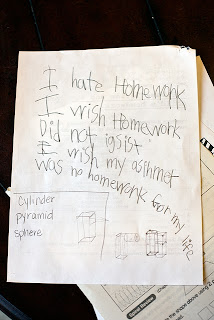 I hate Homework
I wish Homework
Did not igsist
I wish my asinmet
was no homework for my
life
Cylinder
pyramid
sphere